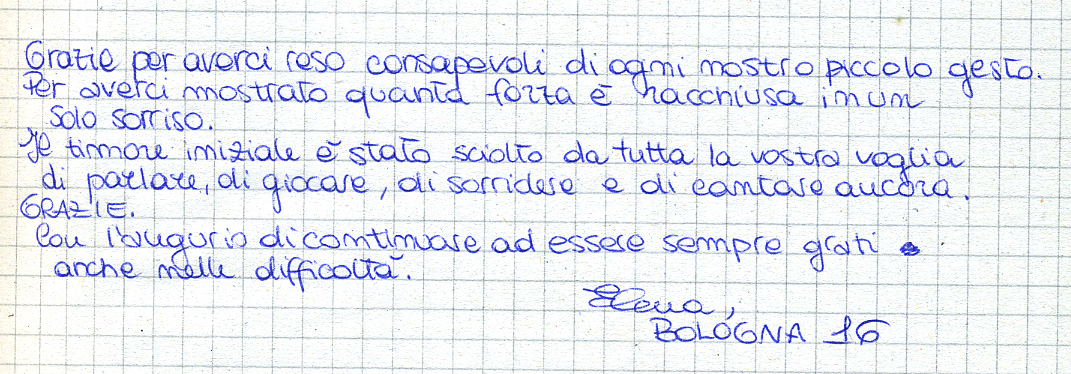 Grazie per averci reso consapevoli di ogni nostro piccolo gesto.
Per averci mostrato quanta forza è racchiusa in un
solo sorriso.
Il timore iniziale è stato sciolto da tutta la vostra voglia
di parlare, di giocare, di sorridere e di cantare ancora.
GRAZIE.
Con l'augurio di continuare ad essere sempre grati
anche nelle difficoltà.
Elena,
BOLOGNA 16